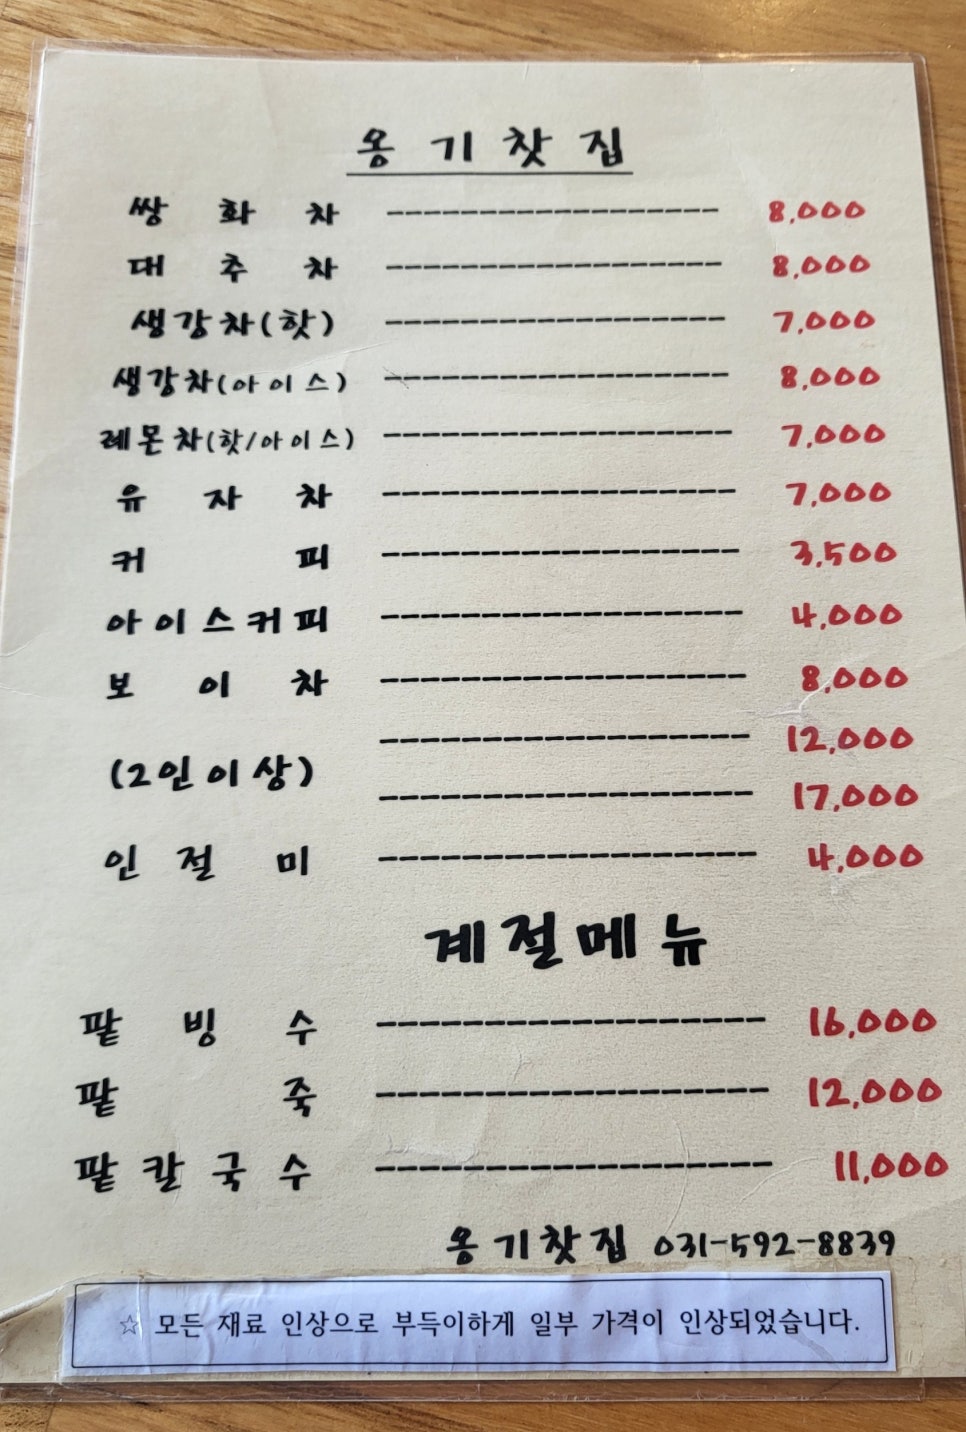 옹기찻집
쌍화차 ------------------ 8,000
대추차 ------------------ 8,000
생강차(핫) ------------------ 7,000
생강차(아이스) ------------------ 8,000
레몬차(핫/아이스) ------------------ 7,000
유자차 ------------------ 7,000
커피 ------------------ 3,500
아이스커피 ------------------ 4,000
보이차 ------------------ 8,000
(2인이상) ------------------ 12,000
------------------ 17,000
인절미 ------------------ 4,000
계절메뉴
팥빙수 ------------------ 16,000
팥죽 ------------------ 12,000
팥칼국수 ------------------ 11,000
옹기찻집 031-592-8839
☆ 모든 재료 인상으로 부득이하게 일부 가격이 인상되었습니다.